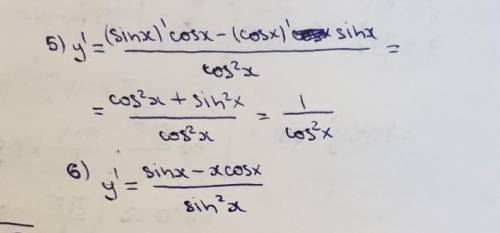 5) y' = (sinx)'cosx - (cosx)' sinx / cos²x =
= cos²x + sin²x / cos²x = 1 / cos²x
6) y' = sinx - xcosx / sin²x